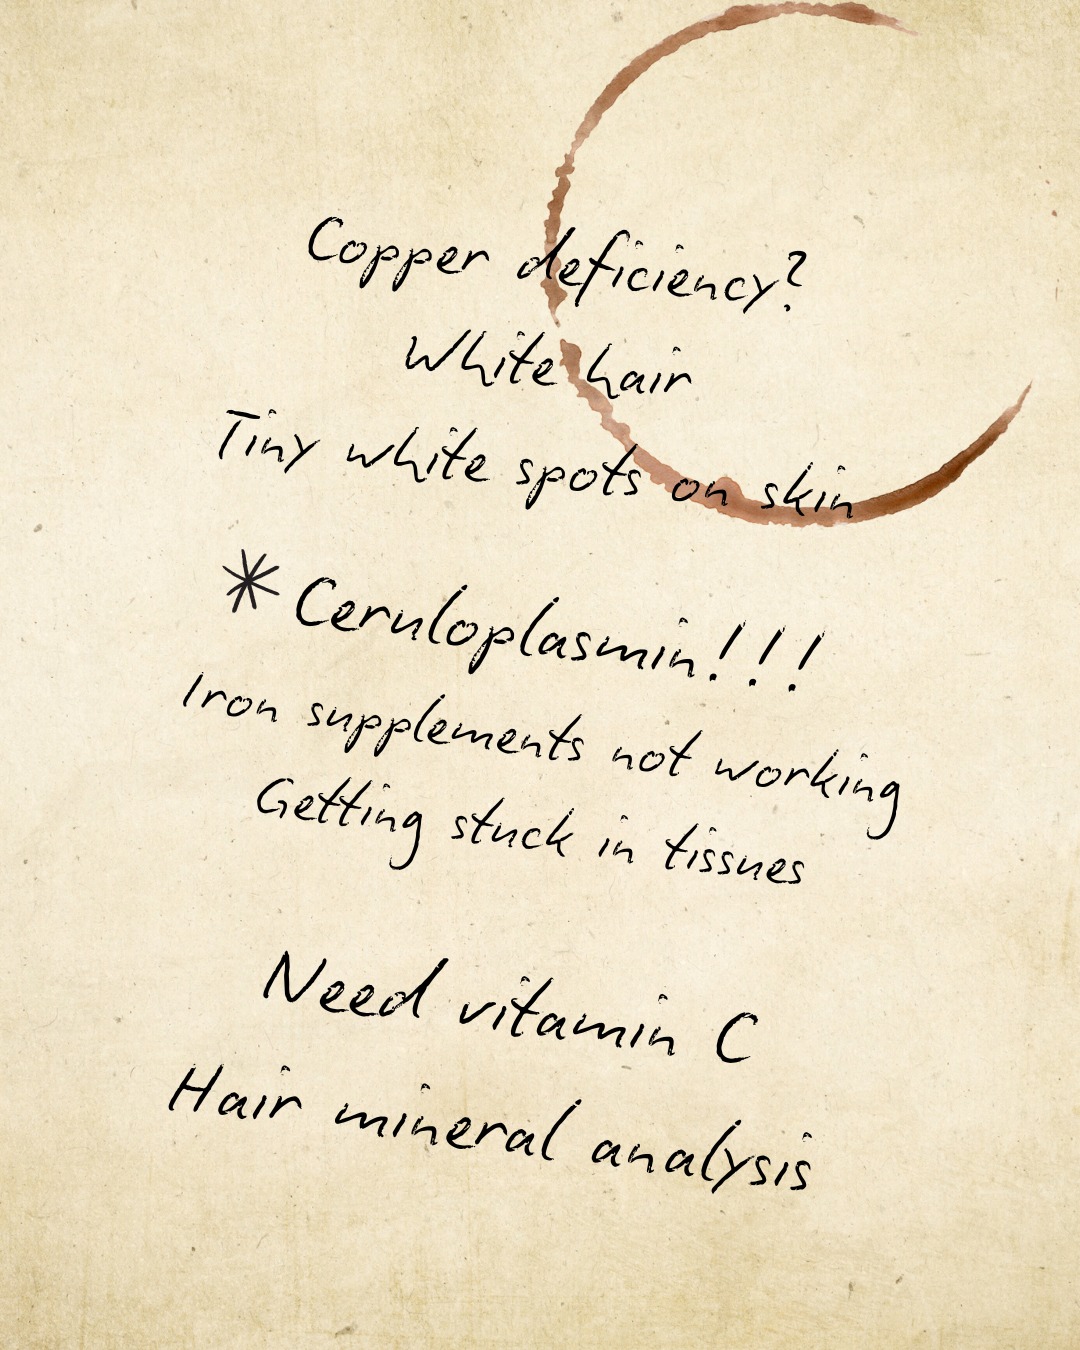 Copper deficiency?
White hair
Tiny white spots on skin
* Ceruloplasmin!!!
Iron supplements not working
Getting stuck in tissues
Need vitamin C
Hair mineral analysis